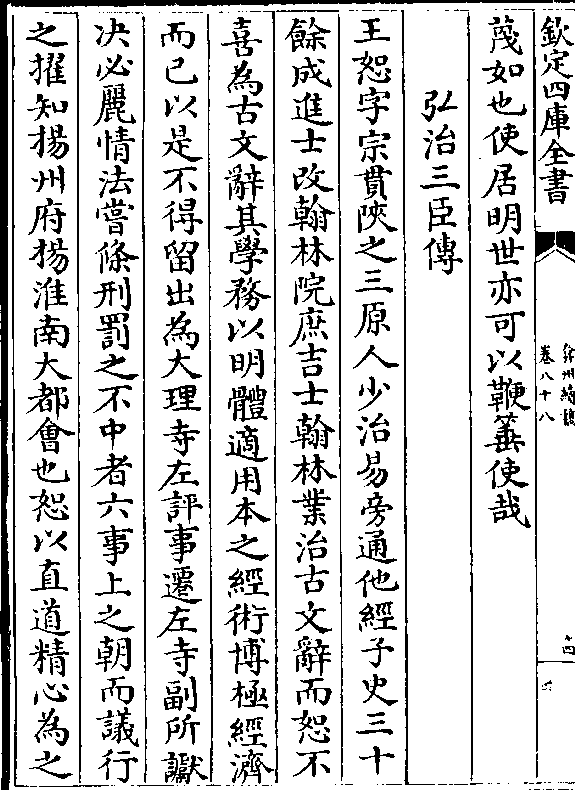 欽定四庫全書
弇州續稿
卷八十八
蔑如也使居明世亦可以鞭箠使哉
弘治三臣傳
王恕字宗貫陝之三原人少治易旁通他經子史三十
餘成進士改翰林院庶吉士翰林業治古文辭而恕不
喜為古文辭其學務以明體適用本之經術博極經濟
而已以是不得留出為大理寺左評事遷左寺副所讞
決必麗情法嘗條刑罰之不中者六事上之朝而議行
之擢知揚州府揚淮南大都會也恕以直道精心為之